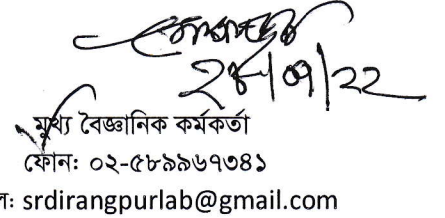 ২৪/০৭/২২
মুখ্য বৈজ্ঞানিক কর্মকর্তা
ফোন: ০২-৫৮৯৯৬৭৩৪১
ল: srdirangpurlab@gmail.com